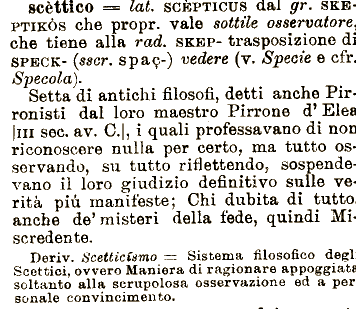 scèttico = lat. SCÈPTICUS dal gr. SKE-
PTIKÒS che propr. vale sottile osservatore,
che tiene alla rad. SKEP- trasposizione di
SPECK- (sscr. spaç-) vedere (v. Specie e cfr.
Specola).
Setta di antichi filosofi, detti anche Pir-
ronisti dal loro maestro Pirrone d' Elea
|III sec. av. C.|, i quali professavano di non
riconoscere nulla per certo, ma tutto os-
servando, su tutto riflettendo, sospende-
vano il loro giudizio definitivo sulle ve-
rità piú manifeste; Chi dubita di tutto,
anche de' misteri della fede, quindi Mi-
scredente.
Deriv. Scetticismo = Sistema filosofico degli
Scettici, ovvero Maniera di ragionare appoggiata
soltanto alla scrupolosa osservazione ed a per-
sonale convincimento.